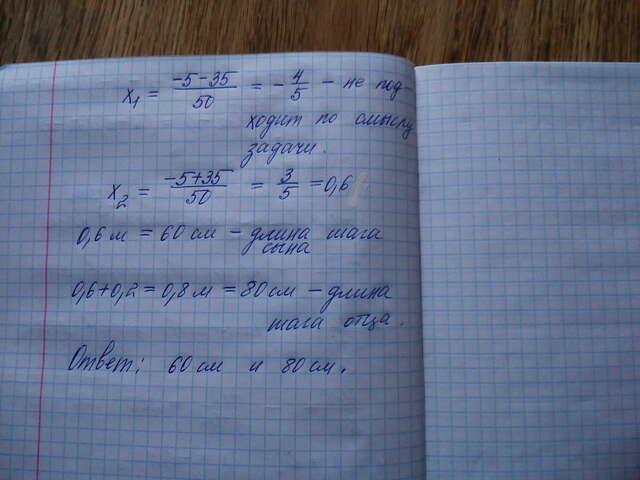 x₁ = (-5-35)/50 = -4/5 - не под-
ходит по смыслу
задачи.
x₂ = (-5+35)/50 = 3/5 = 0,6
0,6 м = 60 см - длина шага
сына
0,6+0,2 = 0,8 м = 80 см - длина
шага отца.
Ответ: 60 см и 80 см.